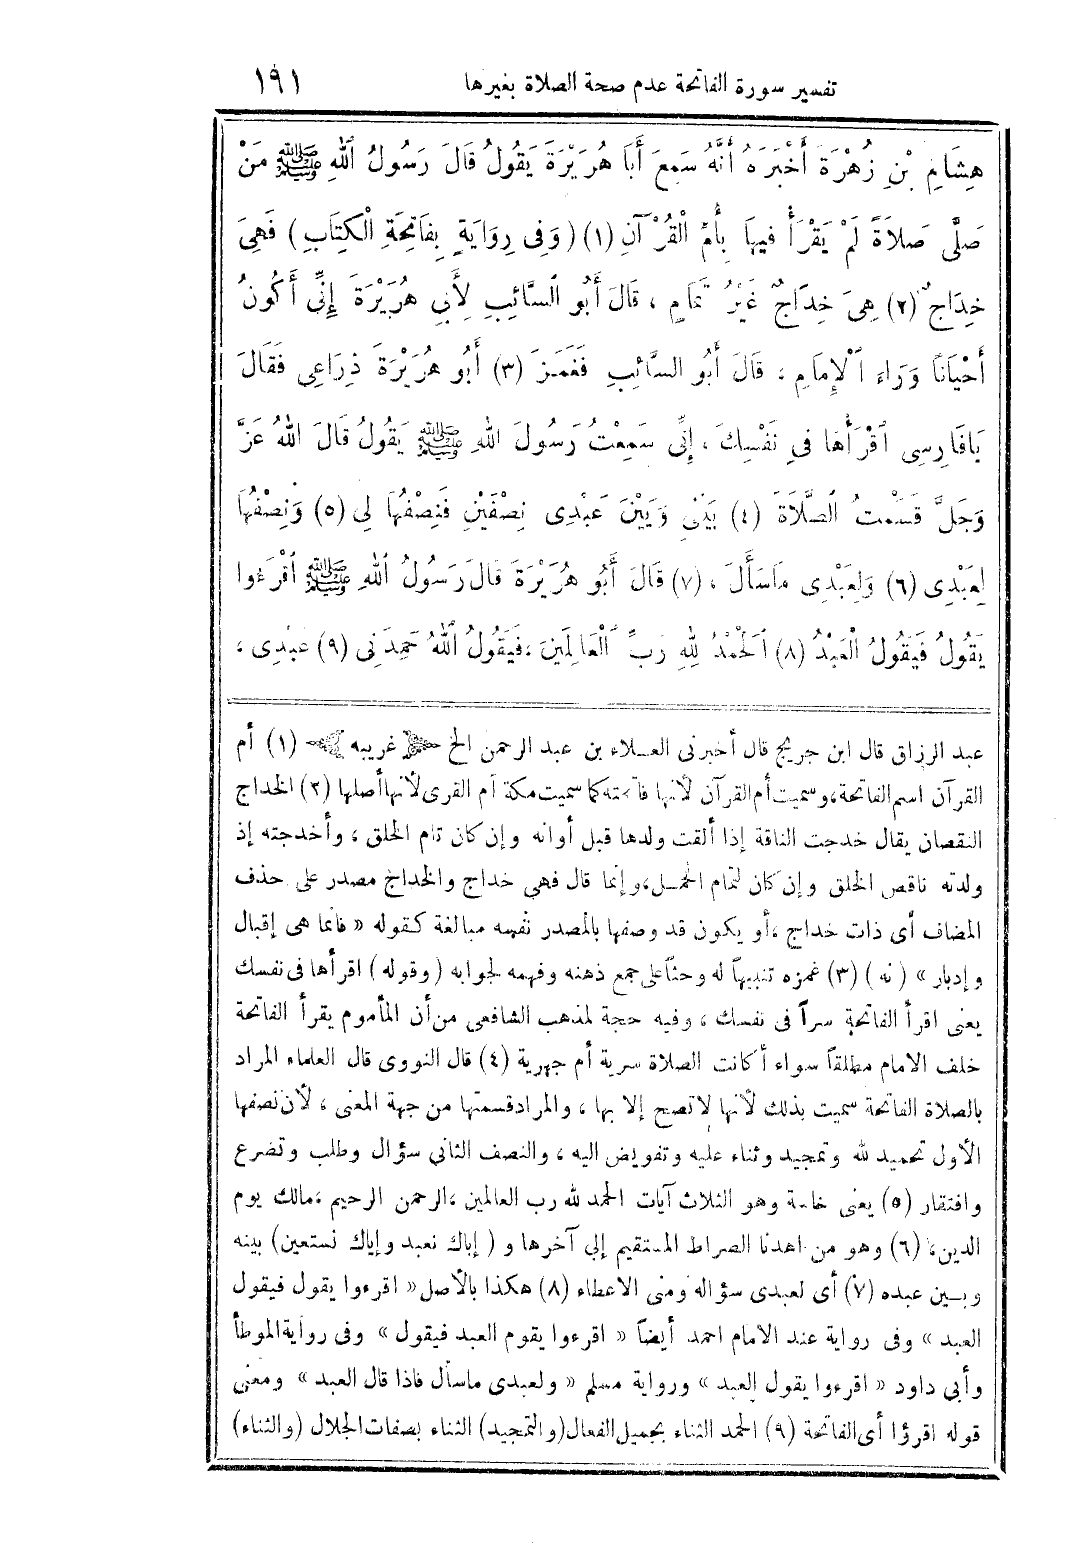 تفسير سورة الفاتحة عدم صحة الصلاة بغيرها ١٩١
هِشَامِ بْنِ زُهْرَةَ أَخْبَرَهُ أَنَّهُ سَمِعَ أَبَا هُرَيْرَةَ يَقُولُ قَالَ رَسُولُ اللهِ ﷺ مَنْ
صَلَّى صَلَاةً لَمْ يَقْرَأْ فِيهَا بِأُمِّ الْقُرْآنِ (١) (وَفِى رِوَايَةٍ بِفَاتِحَةِ الْكِتَابِ) فَهِىَ
خِدَاجٌ (٢) هِىَ خِدَاجٌ غَيْرُ تَمَامٍ ، قَالَ أَبُو السَّائِبِ لِأَبِي هُرَيْرَةَ إِنِّي أَكُونُ
أَحْيَانًا وَرَاءَ الْإِمَامِ ، قَالَ أَبُو السَّائِبِ فَغَمَزَ (٣) أَبُو هُرَيْرَةَ ذِرَاعِى فَقَالَ
يَافَارِسِى اقْرَأْهَا فِى نَفْسِكَ ، إِنِّى سَمِعْتُ رَسُولَ اللهِ ﷺ يَقُولُ قَالَ اللهُ عَزَّ
وَجَلَّ قَسَمْتُ الصَّلَاةَ (٤) بَيْنِى وَبَيْنَ عَبْدِى نِصْفَيْنِ فَنِصْفُهَا لِى (٥) وَنِصْفُهَا
لِعَبْدِى (٦) وَلِعَبْدِى مَاسَأَلَ ، (٧) قَالَ أَبُو هُرَيْرَةَ قَالَ رَسُولُ اللهِ ﷺ اقْرَءُوا
يَقُولُ فَيَقُولُ الْعَبْدُ (٨) اَلْحَمْدُ لِلهِ رَبِّ الْعَالَمِينَ ، فَيَقُولُ اللهُ حَمِدَنِى (٩) عَبْدِى ،
عبد الرزاق قال ابن جريج قال أخبرنى العلاء بن عبد الرحمن الخ غريبه (١) أم
القرآن اسم الفاتحة، وسميت أم القرآن لأنها فاتحته كما سميت مكة أم القرى لأنها أصلها (٢) الخداج
النقصان يقال خدجت الناقة إذا ألقت ولدها قبل أوانه وإن كان تام الخلق ، وأخدجته إذ
ولدته ناقص الخلق وإن كان لتمام الحمل، وإنما قال فهى خداج والخداج مصدر على حذف
المضاف أى ذات خداج ، أو يكون قد وصفها بالمصدر نفسه مبالغة كقوله « فانما هى إقبال
وإدبار » (نه) (٣) غمزه تنبيهاً له وحثاً على جمع ذهنه وفهمه لجوابه (وقوله) اقرأها فى نفسك
يعنى اقرأ الفاتحة سراً فى نفسك ، وفيه حجة لمذهب الشافعى من أن المأموم يقرأ الفاتحة
خلف الامام مطلقاً سواء أكانت الصلاة سرية أم جهرية (٤) قال النووى قال العلماء المراد
بالصلاة الفاتحة سميت بذلك لأنها لا تصح إلا بها ، والمراد قسمتها من جهة المعنى ، لأن نصفها
الأول تحميد لله وتمجيد وثناء عليه وتفويض اليه ، والنصف الثانى سؤال وطلب وتضرع
وافتقار (٥) يعنى خاصة وهو الثلاث آيات الحمد لله رب العالمين ، الرحمن الرحيم ، مالك يوم
الدين، (٦) وهو من اهدنا الصراط المستقيم إلى آخرها و (إياك نعبد وإياك نستعين) بينه
وبين عبده (٧) أى لعبدى سؤاله ومنى الاعطاء (٨) هكذا بالأصل « اقرءوا يقول فيقول
العبد » وفى رواية عند الامام احمد أيضاً « اقرءوا يقوم العبد فيقول » وفى رواية الموطأ
وأبى داود « اقرءوا يقول العبد » ورواية مسلم « ولعبدى ماسأل فاذا قال العبد » ومعنى
قوله اقرؤا أى الفاتحة (٩) الحمد الثناء بجميل الفعال (والتمجيد) الثناء بصفات الجلال (والثناء)